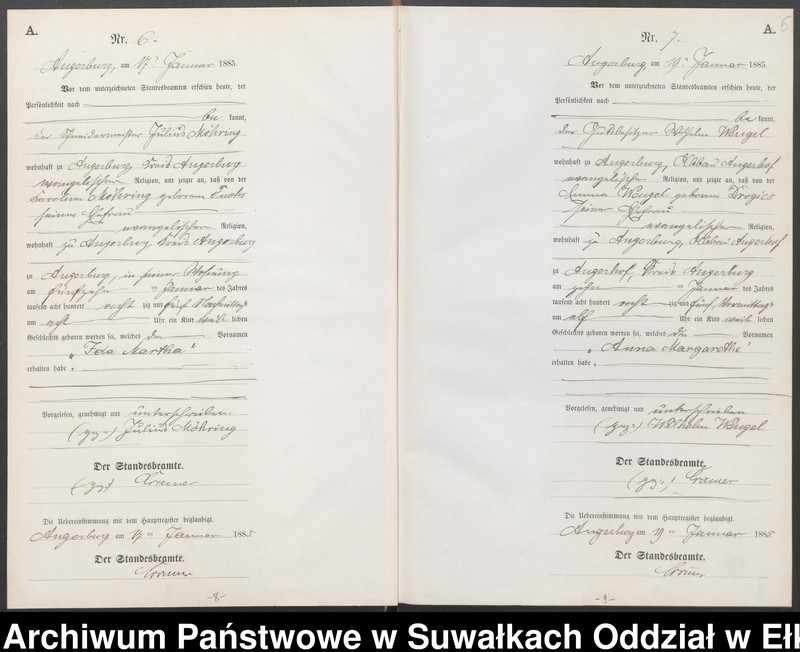 A.
Nr. 6.
Angerburg, am 17ten Januar 1885.
Vor dem unterzeichneten Standesbeamten erschien heute, der
Persönlichkeit nach
be kannt,
der Schneidermeister Julius Möhring
wohnhaft zu Angerburg Kreis Angerburg
evangelischer Religion, und zeigte an, daß von der
Caroline Möhring geborenen Fuchs
seiner Ehefrau
evangelischer Religion,
wohnhaft zu Angerburg Kreis Angerburg
zu Angerburg, in seiner Wohnung
am fünfzehn ten Januar des Jahres
tausend acht hundert acht zig und fünf Nachmittags
um acht Uhr ein Kind weib lichen
Geschlechts geboren worden sei, welches die Vornamen
„Ida Martha“
erhalten habe.
Vorgelesen, genehmigt und unterschrieben.
(gez.) Julius Möhring
Der Standesbeamte.
(gez.) Cramer
Die Uebereinstimmung mit dem Hauptregister beglaubigt.
Angerburg am 17 ten Januar 1885
Der Standesbeamte.
Cramer
-8-
A.
5
Nr. 7.
Angerburg, am 19ten Januar 1885.
Vor dem unterzeichneten Standesbeamten erschien heute, der
Persönlichkeit nach
be kannt,
der Gutsbesitzer Wilhelm Wengel
wohnhaft zu Angerburg, Abbau Angerhof
evangelischer Religion, und zeigte an, daß von der
Anna Wengel geborenen
seiner Ehefrau
evangelischer Religion,
wohnhaft zu Angerburg, Abbau Angerhof
zu Angerhof, Kreis Angerburg
am zehn ten Januar des Jahres
tausend acht hundert acht zig und fünf Vormittags
um elf Uhr ein Kind weib lichen
Geschlechts geboren worden sei, welches die Vornamen
„Anna Margarethe“
erhalten habe.
Vorgelesen, genehmigt und unterschrieben
(gez.) Wilhelm Wengel
Der Standesbeamte.
(gez.) Cramer
Die Uebereinstimmung mit dem Hauptregister beglaubigt.
Angerburg am 19 ten Januar 1885
Der Standesbeamte.
Cramer
-9-
Archiwum Państwowe w Suwałkach Oddział w Ełk